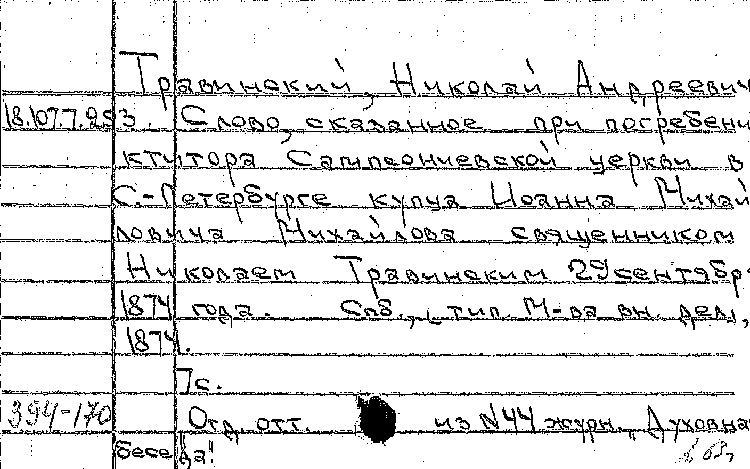 Травинский, Николай Андреевич
18.107.7.253. Слово, сказанное при погребени
ктитора Сампсониевской церкви в
С.-Петербурге купца Иоанна Михай
ловича Михайлова священником
Николаем Травинским 29 сентябр
1874 года. Спб., тип. М-ва вн. дел,
1874.
7с.
394-170 Отд. отт. из N44 журн. „Духовна
беседа"